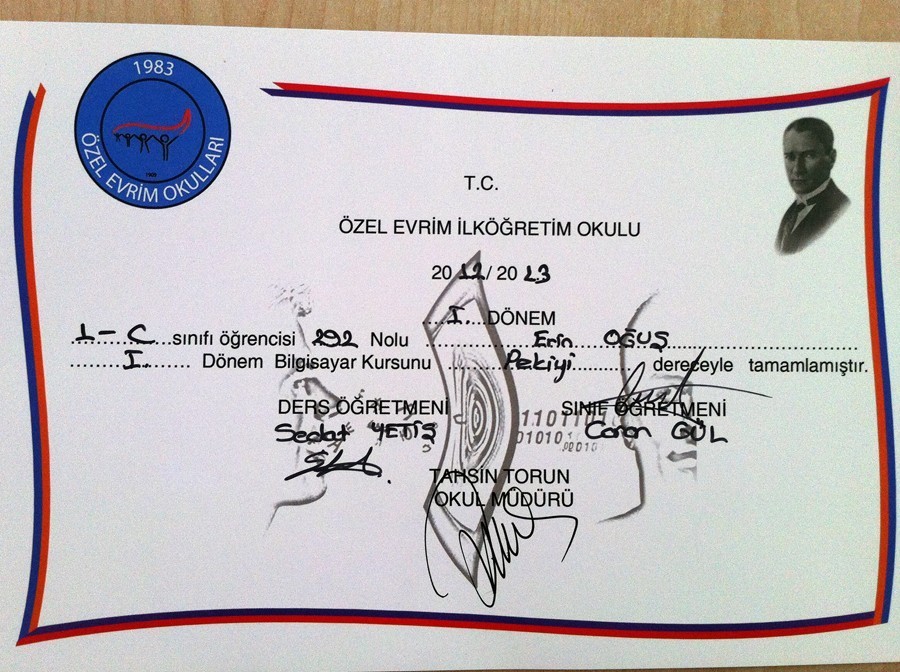 1983
ÖZEL EVRİM OKULLARI
1983
T.C.
ÖZEL EVRİM İLKÖĞRETİM OKULU
2012/2013
I. DÖNEM
1-C sınıfı öğrencisi 292 Nolu Erin OĞUŞ
I. Dönem Bilgisayar Kursunu Pekiyi dereceyle tamamlamıştır.
DERS ÖĞRETMENİ SINIF ÖĞRETMENİ
Sedat YETİŞ Caron GÜL
TAHSİN TORUN
OKUL MÜDÜRÜ